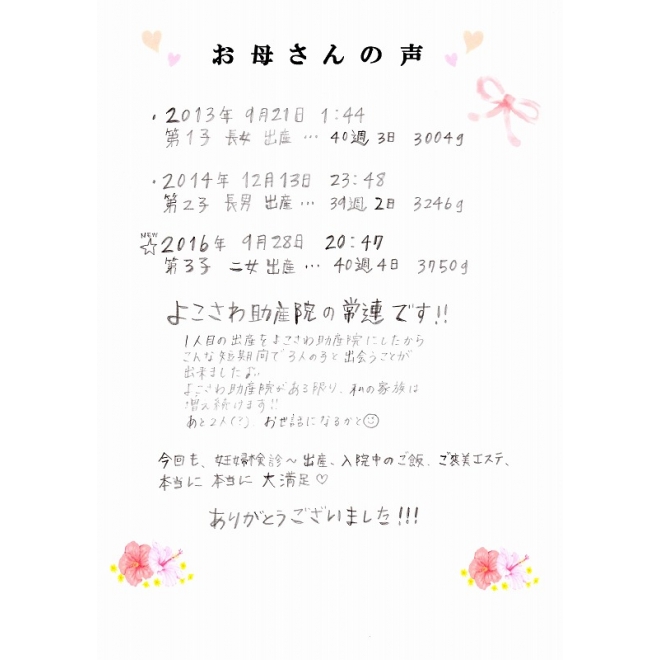 お母さんの声
・2013年 9月21日 1:44
第1子 長女 出産 … 40週 3日 3004g
・2014年 12月13日 23:48
第2子 長男 出産 … 39週 2日 3246g
NEW
☆2016年 9月28日 20:47
第3子 二女 出産 … 40週 4日 3750g
よこさわ助産院の常連です!!
1人目の出産をよこさわ助産院にしたから
こんな短期間で3人の子と出会うことが
出来ましたよ。
よこさわ助産院がある限り、私の家族は
増え続けます!!
あと2人(?)、お世話になるかと☺
今回も、妊婦検診〜出産、入院中のご飯、ご褒美エステ、
本当に 本当に 大満足♡
ありがとうございました!!!